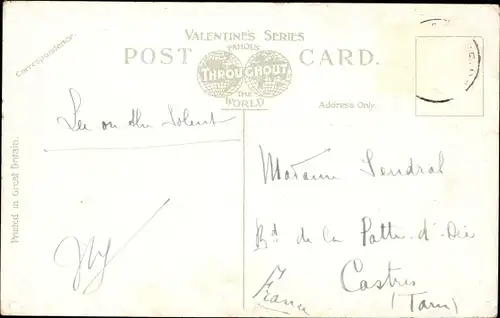 VALENTINE'S SERIES
FAMOUS
POST CARD.
THROUGHOUT
THE
WORLD
Correspondence.
Address Only.
Printed in Great Britain.
Lee on the Solent
Madame Sendral
Bd de la Patte-d'Oie
Castres
(Tarn)
France